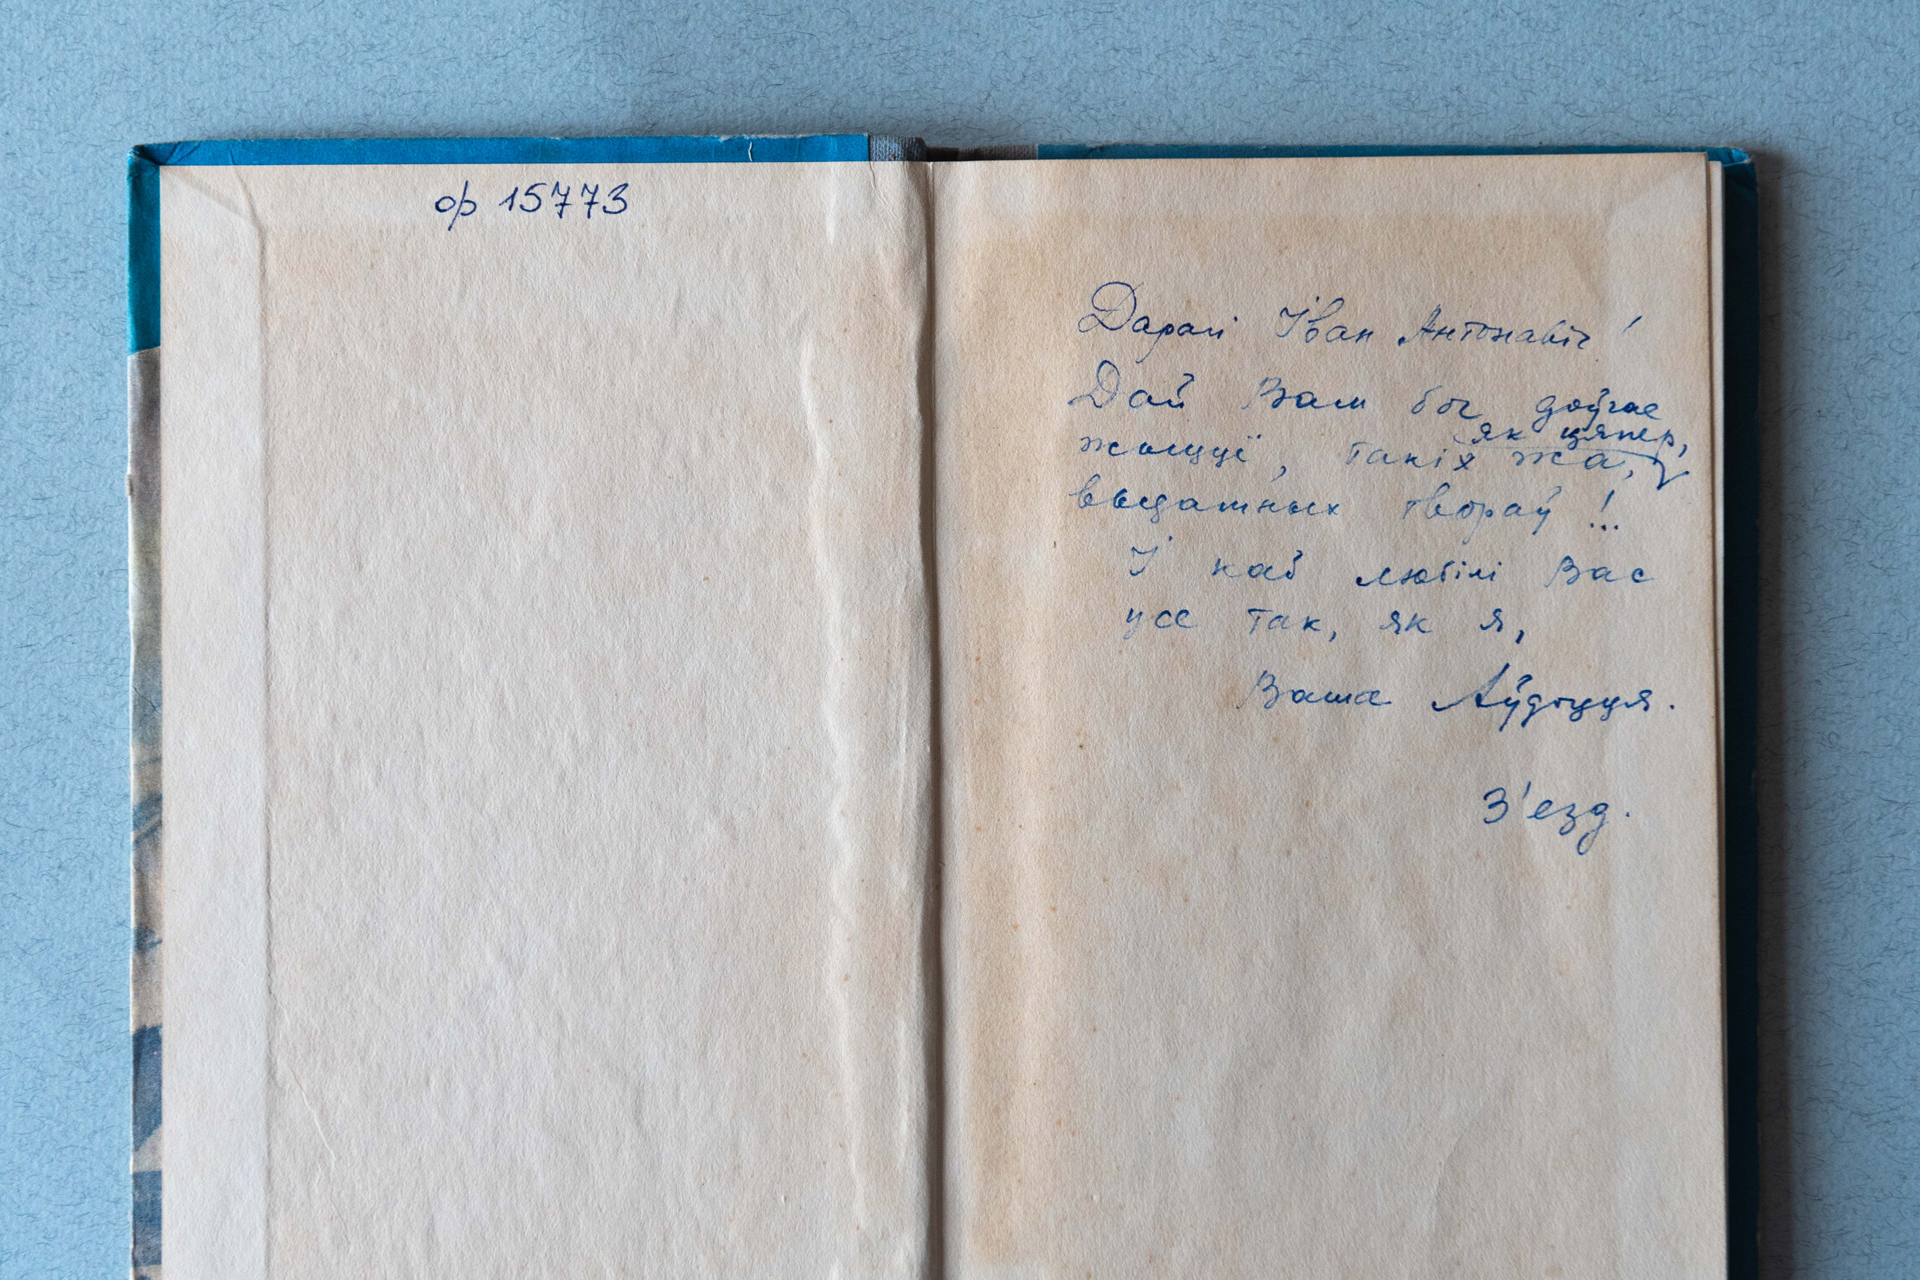 ор 15773
Дарагі Іван Антонавіч!
Дай Вам бог доўгае
як цяпер,
жыццё, такіх жа,
выдатных твораў!..
І каб любілі Вас
усе так, як я,
Ваша Аўдоцця.
З'езд.